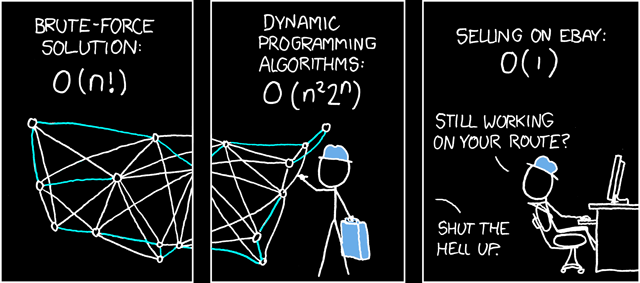 BRUTE-FORCE
SOLUTION:
O(n!)
DYNAMIC
PROGRAMMING
ALGORITHMS:
O(n²2ⁿ)
SELLING ON EBAY:
O(1)
STILL WORKING
ON YOUR ROUTE?
SHUT THE
HELL UP.